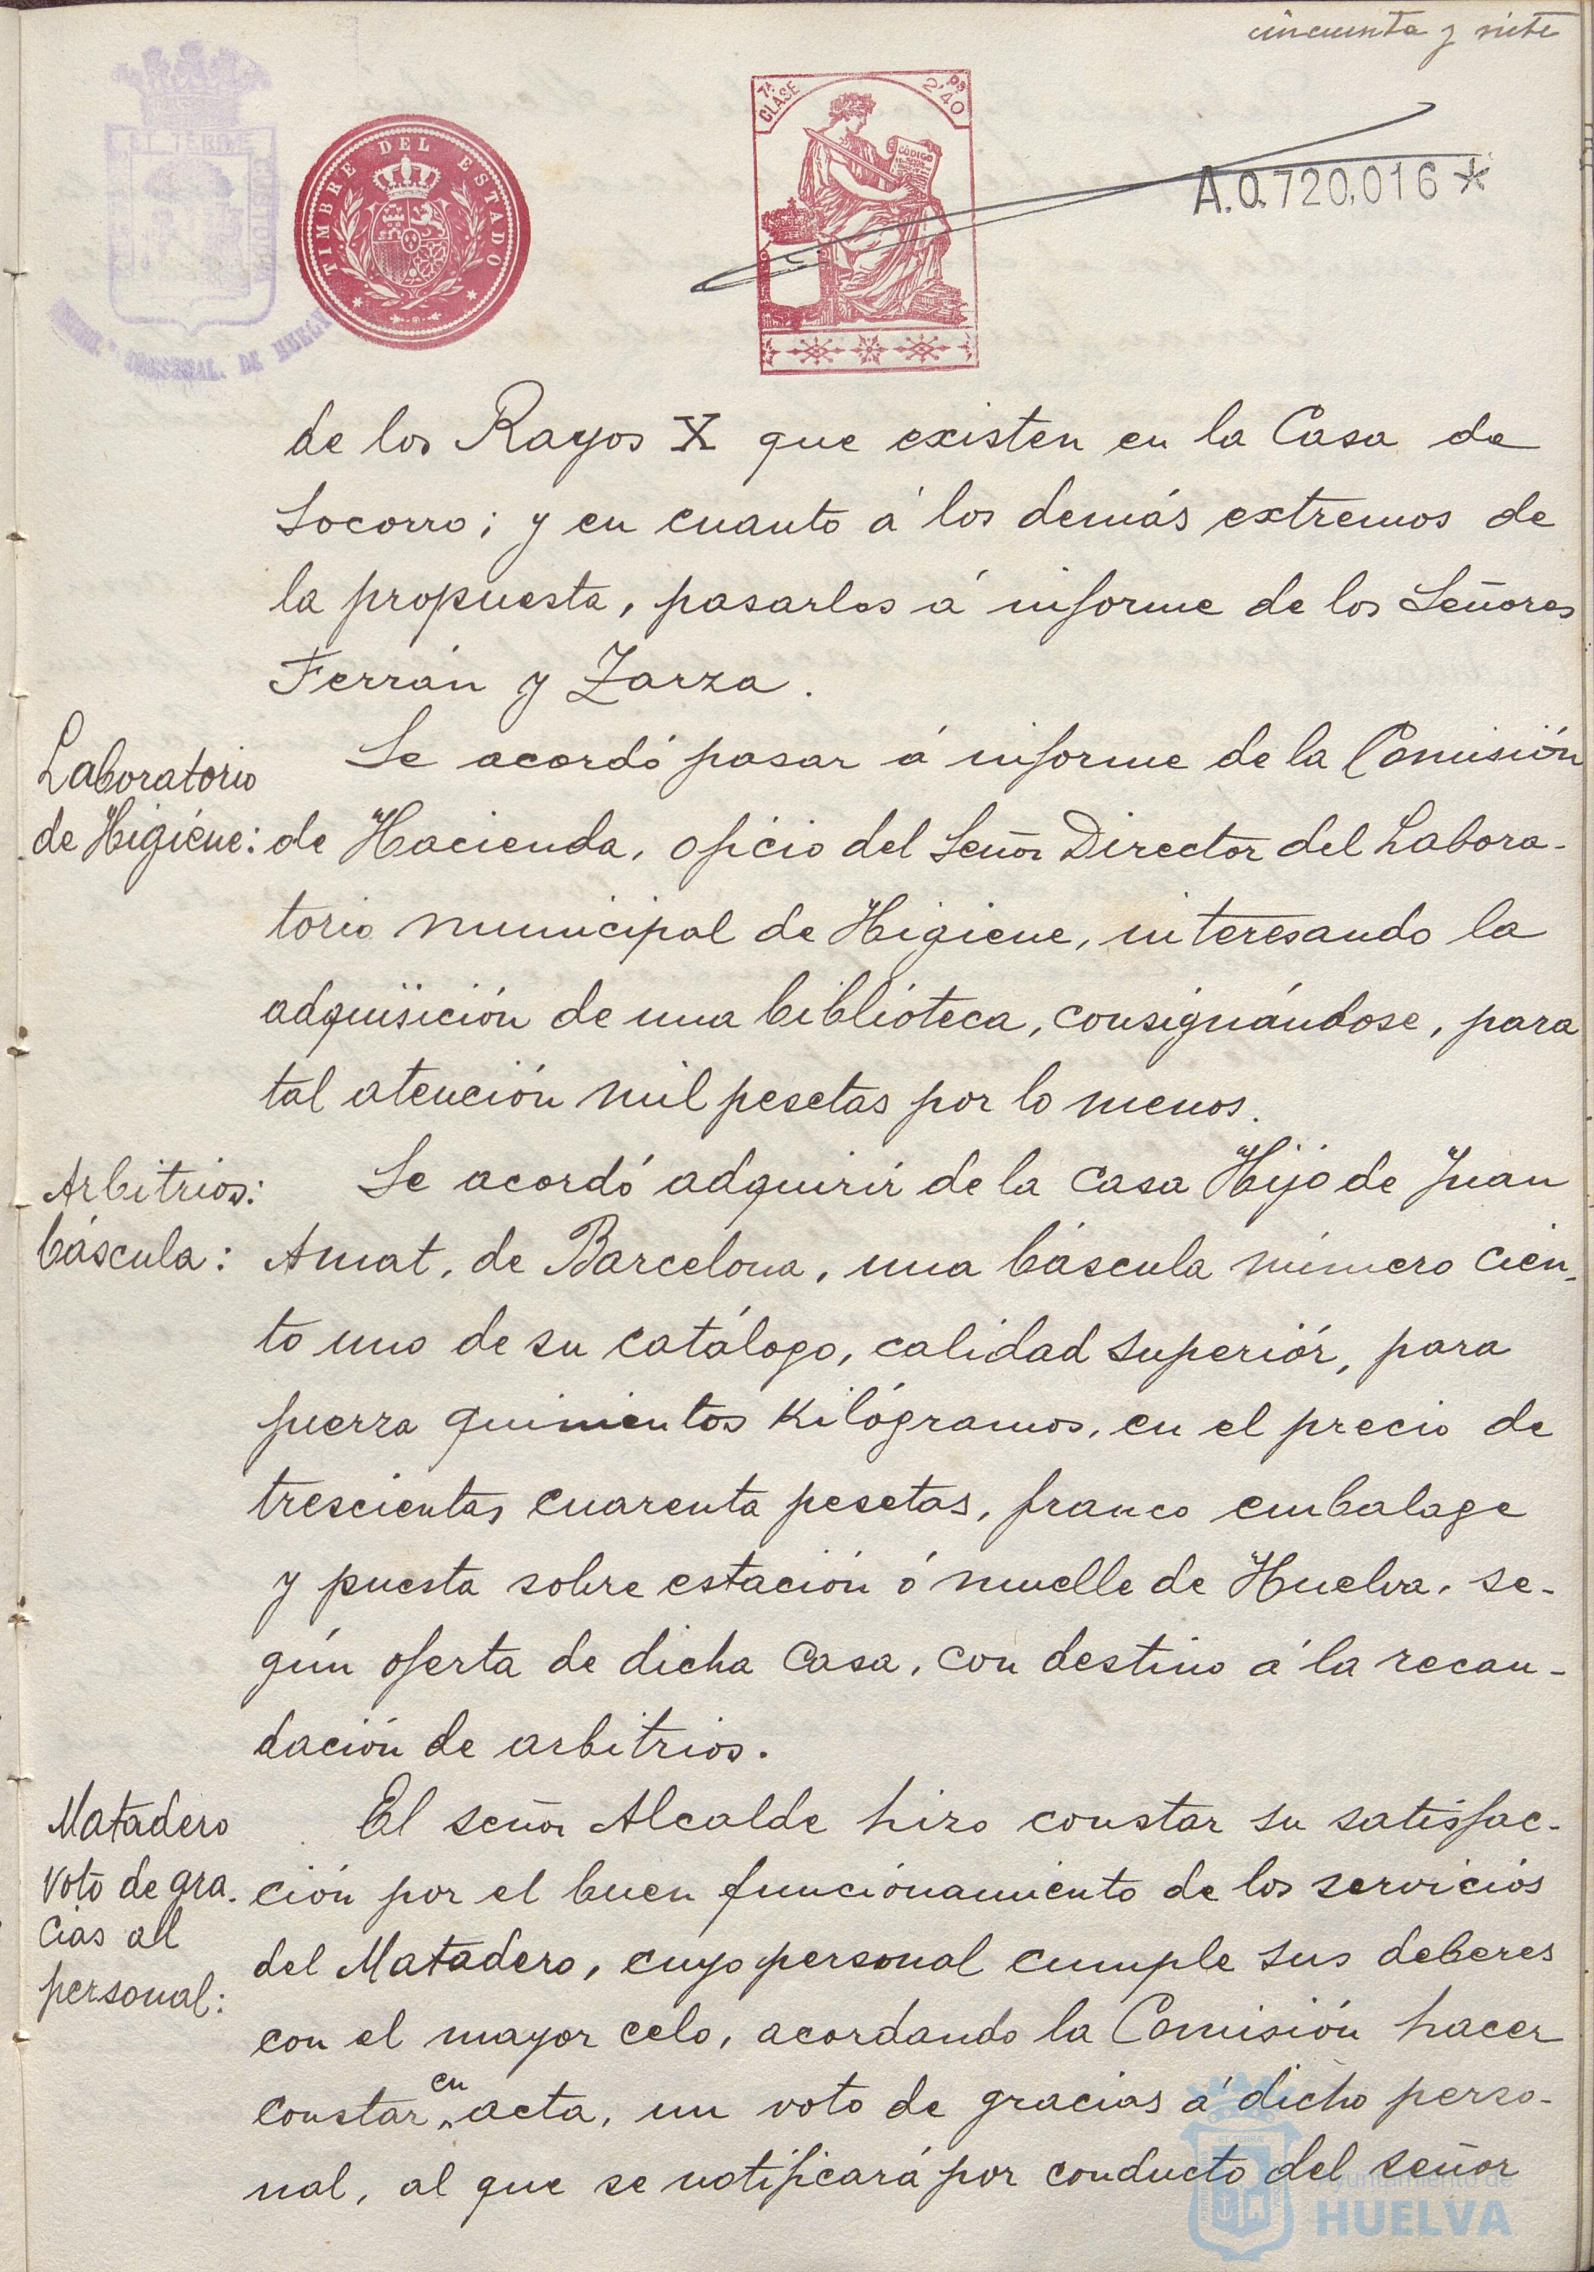 cincuenta y siete
TIMBRE DEL ESTADO
7ª CLASE
2'40
CÓDIGO
A.0.720,016*
DE HUELVA
de los Rayos X que existen en la Casa de
Socorro; y en cuanto á los demás extremos de
la propuesta, pasarlos á informe de los Señores
Ferrán y Zarza.
Laboratorio
de Higiene:
Se acordó pasar á informe de la Comisión
de Hacienda, oficio del Señor Director del Labora-
torio municipal de Higiene, interesando la
adquisición de una biblioteca, consignándose, para
tal atención mil pesetas por lo menos.
Arbitrios:
báscula:
Se acordó adquirir de la casa Hijo de Juan
Amat, de Barcelona, una báscula número cien-
to uno de su catálogo, calidad superior, para
fuerza quinientos Kilógramos, en el precio de
trescientas cuarenta pesetas, franco embalage
y puesta sobre estación ó muelle de Huelva, se-
gún oferta de dicha Casa, con destino á la recau-
dación de arbitrios.
Matadero
voto de gra-
cias al
personal:
El señor Alcalde hizo constar su satisfac-
ción por el buen funcionamiento de los servicios
del Matadero, cuyo personal cumple sus deberes
con el mayor celo, acordando la Comisión hacer
constar en acta, un voto de gracias á dicho perso-
nal, al que se notificará por conducto del señor
Ayuntamiento de
HUELVA